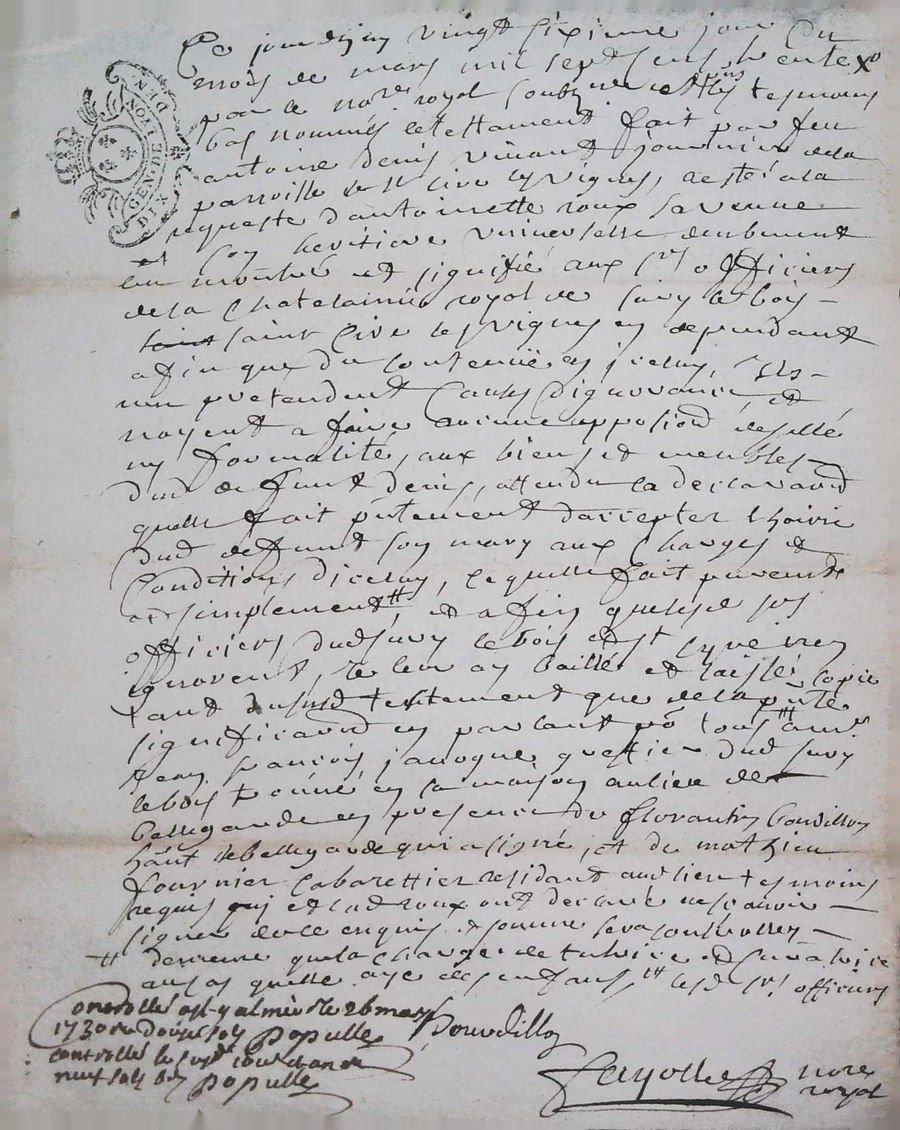 GEN DE LYON
DIX DEN
Ce jourdhuy vingt sixieme jour du
mois de mars mil sept cens trente
par le no.re royal soubsigné et les tesmoins
bas nommés le testament fait par feu
antoine denis vivant journalier de la
parroisse de st Cire les vignes, a esté a la
requeste dantoinette roux sa veuve
et son heritiere universelle deubement
et signiffié aux srs officiers
de la Chatelainie royal de Sury le bois
saint Cire les vignes en dependant
afin que du contenu en iceluy, ils
nen pretendent Cause dignorance, et
nayent a faire aucune apposion de sellé
ny formalité, aux biens et meubles
dud deffunt denis, attendu la declaraon
quelle fait pntement daccepter lhoirie
dud deffunt son mary aux Charges et
Conditions diceluy, ce quelle fait purement
et simplement ⧺, et afin que lesd srs
officiers dud Sury le bois et st Cyre nen
ignorent, je leur ay baillé et laissé copie
tant dususd testement que de la pnte
significaon en parlant po.r tous a m.e
françois janoque greffier dud Sury
le bois trouvé en sa maison au lieu de
bellegarde en presence de florantin bourdillon
hant de bellegarde qui a signé, et de mathieu
fournier Cabarettier residant aud lieu tesmoins
requis qui et lad roux ont declaré ne scavoir
signer de ce enquis et sommé sera controllé
⧺ de mesme que la charge de tutrice et Curatrice
quelle aye de ses enfans ⧺ lesd srs officiers
Controllé a st galmier le 26 mars
1730 R douze sols Populle
controllé le
neuf sols Populle
Bourdillon
Fayolle nore
royal